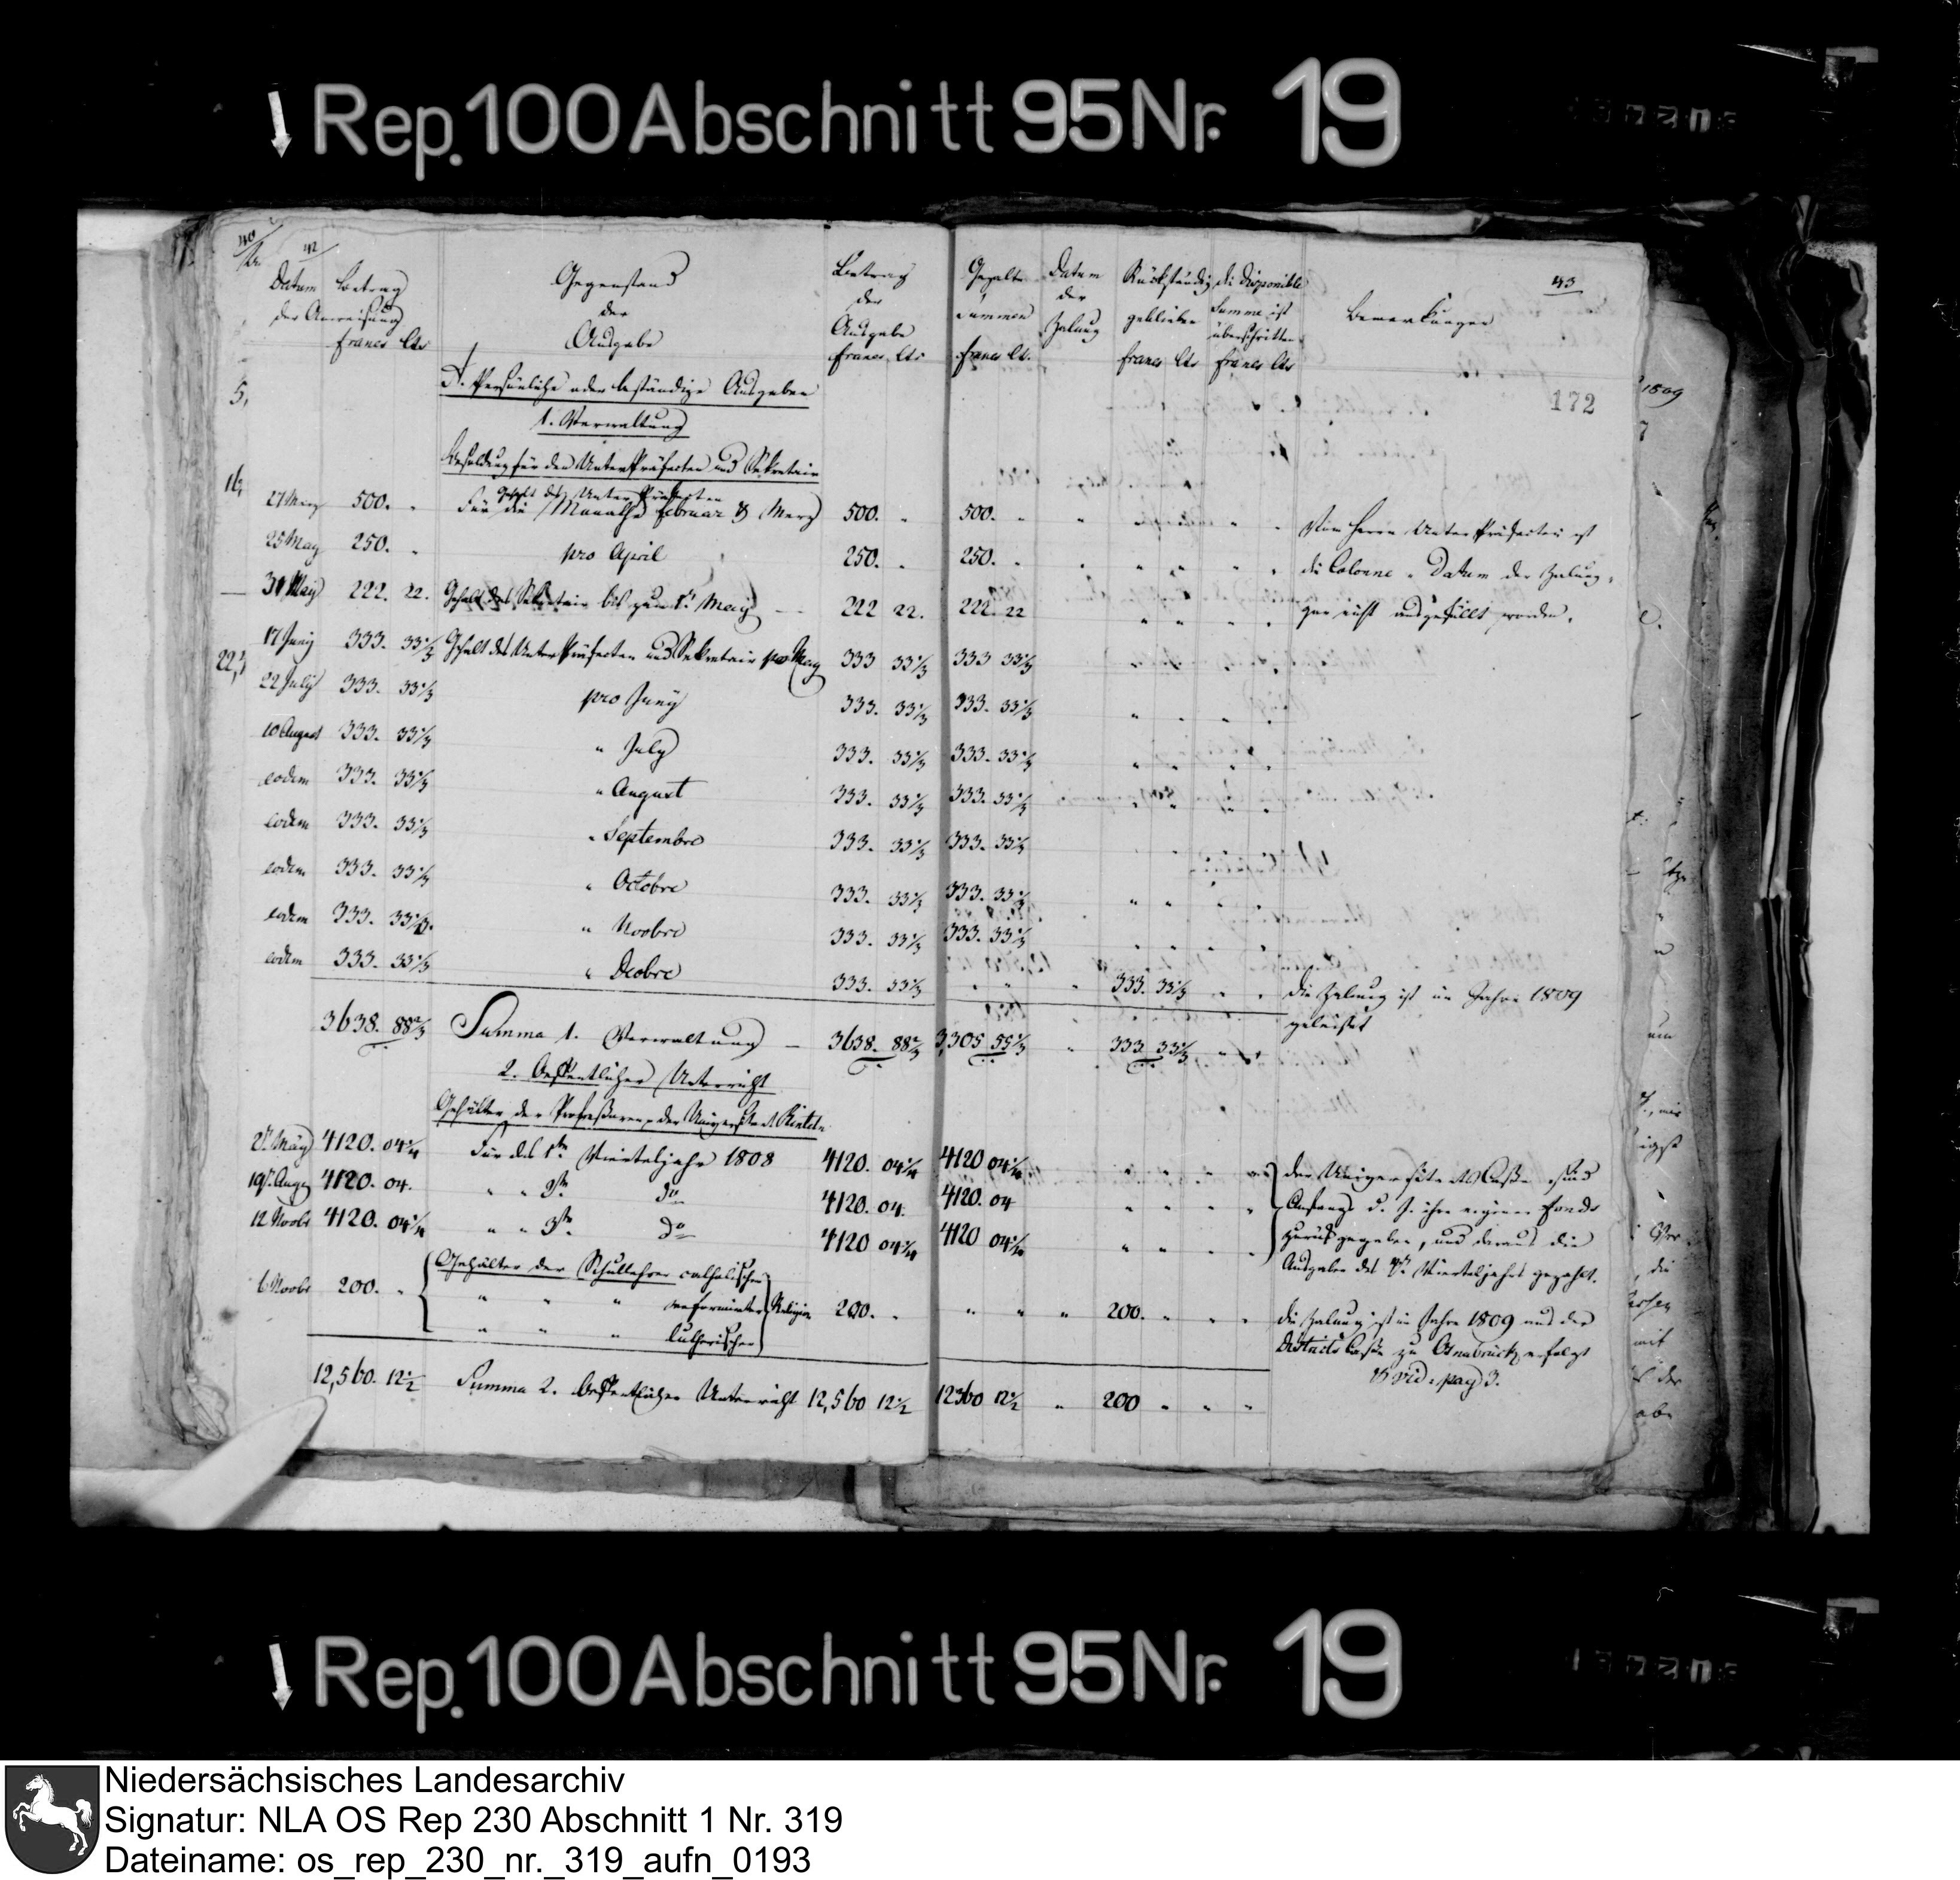 Rep. 100 Abschnitt 95 Nr. 19
42
43
Datum Betrag
der Anweisung
francs Cts
Gegenstand
der
Ausgabe
Betrag
der
Ausgabe
francs Cts
Gezalte
Summen
francs Ct.
Datum
der
Zalung
Rückständig
geblieben
francs Cts
die disponible
Summe ist
überschritten
francs Cts
Bemerkungen
172
A. Persönliche oder beständige Ausgaben
1. Verwaltung
Besoldung für den Unter Präfecten und Sekretair
Gehalt des Unter Präfecten
27 Merz 500. " Für die Monathe februar & Merz 500. " 500. " Vom Herrn Unter Präfecten ist
25 May 250. " pro April 250. " 250. " die Colonne " Datum der Zalung "
31 May 222. 22. Gehalt des Sekretair bis zum 1t May 222 22. 222. 22 gar nicht ausgefüllt worden.
17 Juny 333. 33⅓ Gehalt des Unter Präfecten und Sekretair pro May 333 33⅓ 333 33⅓
22 July 333. 33⅓ pro Juny 333. 33⅓ 333. 33⅓
10 August 333. 33⅓ " July 333. 33⅓ 333. 33⅓
eodem 333. 33⅓ " August 333. 33⅓ 333. 33⅓
eodem 333. 33⅓ " Septembre 333. 33⅓ 333. 33⅓
eodem 333. 33⅓ " Octobre 333. 33⅓ 333. 33⅓
eodem 333. 33⅓. " Novbre 333. 33⅓ 333. 33⅓
eodem 333. 33⅓ " Decbre 333. 33⅓ " " " 333. 33⅓ " " die Zalung ist im Jahre 1809
geleistet
3638. 88⅔ Summa 1. Verwaltung 3638. 88⅔ 3,305 55⅓ " 333 33⅓ " "
2. Oeffentlicher Unterricht
Gehälter der Professoren der Universitaet Rinteln
27 May 4120. 04¼ Für das 1te Vierteljahr 1808 4120. 04¼ 4120 04¼ der Universitaets Casse sind
19 Aug 4120. 04. " " 2te do 4120. 04. 4120. 04 Anfangs d. J. ihre eigenen fonds
12 Novbr 4120. 04¼ " " 3te do 4120 04¼ 4120 04¼ zurückgegeben, und daraus die
Ausgaben des 4ten Vierteljahrs gezahlt.
Gehälter der Schullehrer catholischer
6 Novbr 200. " " " " reformirter Religion 200. " " " " 200. " " " die Zalung ist im Jahre 1809 aus der
" " " lutherischer
Districts Casse zu Osnabrück erfolgt
vid. pag 3.
12,560. 12½ Summa 2. Oeffentlicher Unterricht 12,560 12½ 12360 12½ " 200 " " "
Rep. 100 Abschnitt 95 Nr. 19
Niedersächsisches Landesarchiv
Signatur: NLA OS Rep 230 Abschnitt 1 Nr. 319
Dateiname: os_rep_230_nr._319_aufn_0193